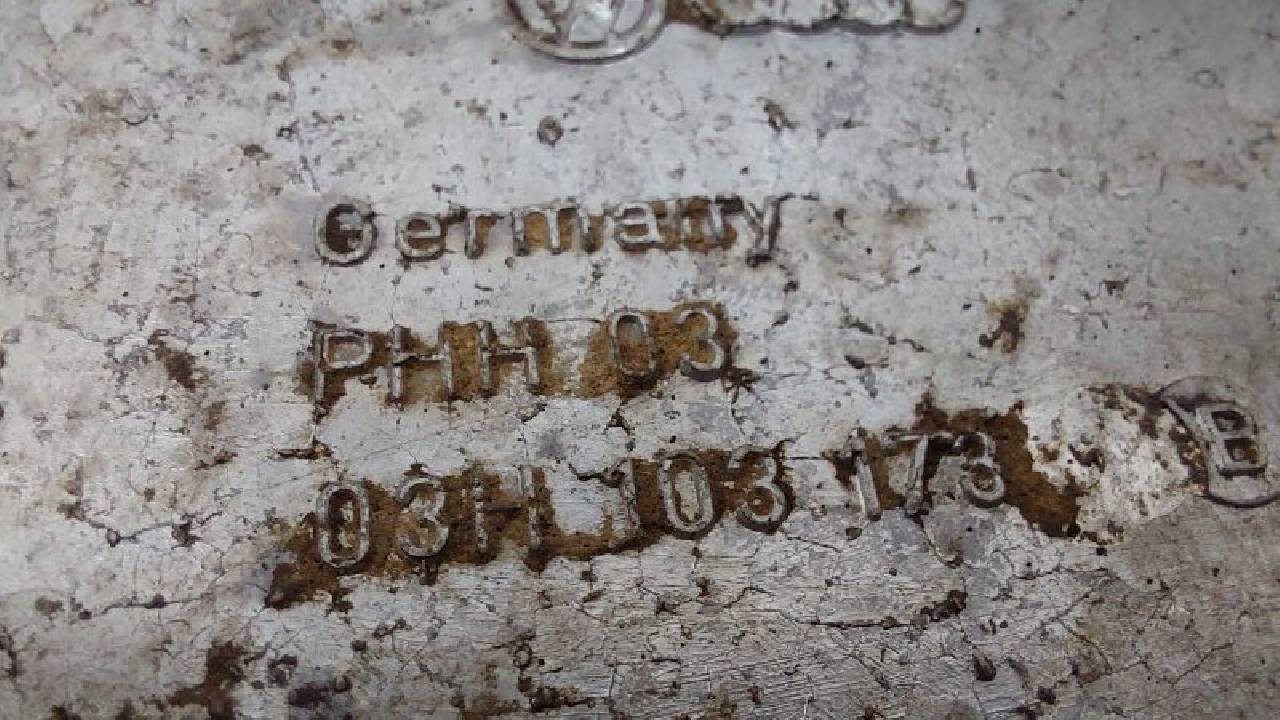 Germany
PHH 03
03H 103 173 B